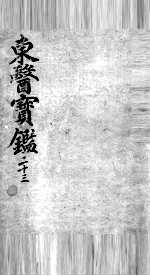 東醫寶鑑 二十三